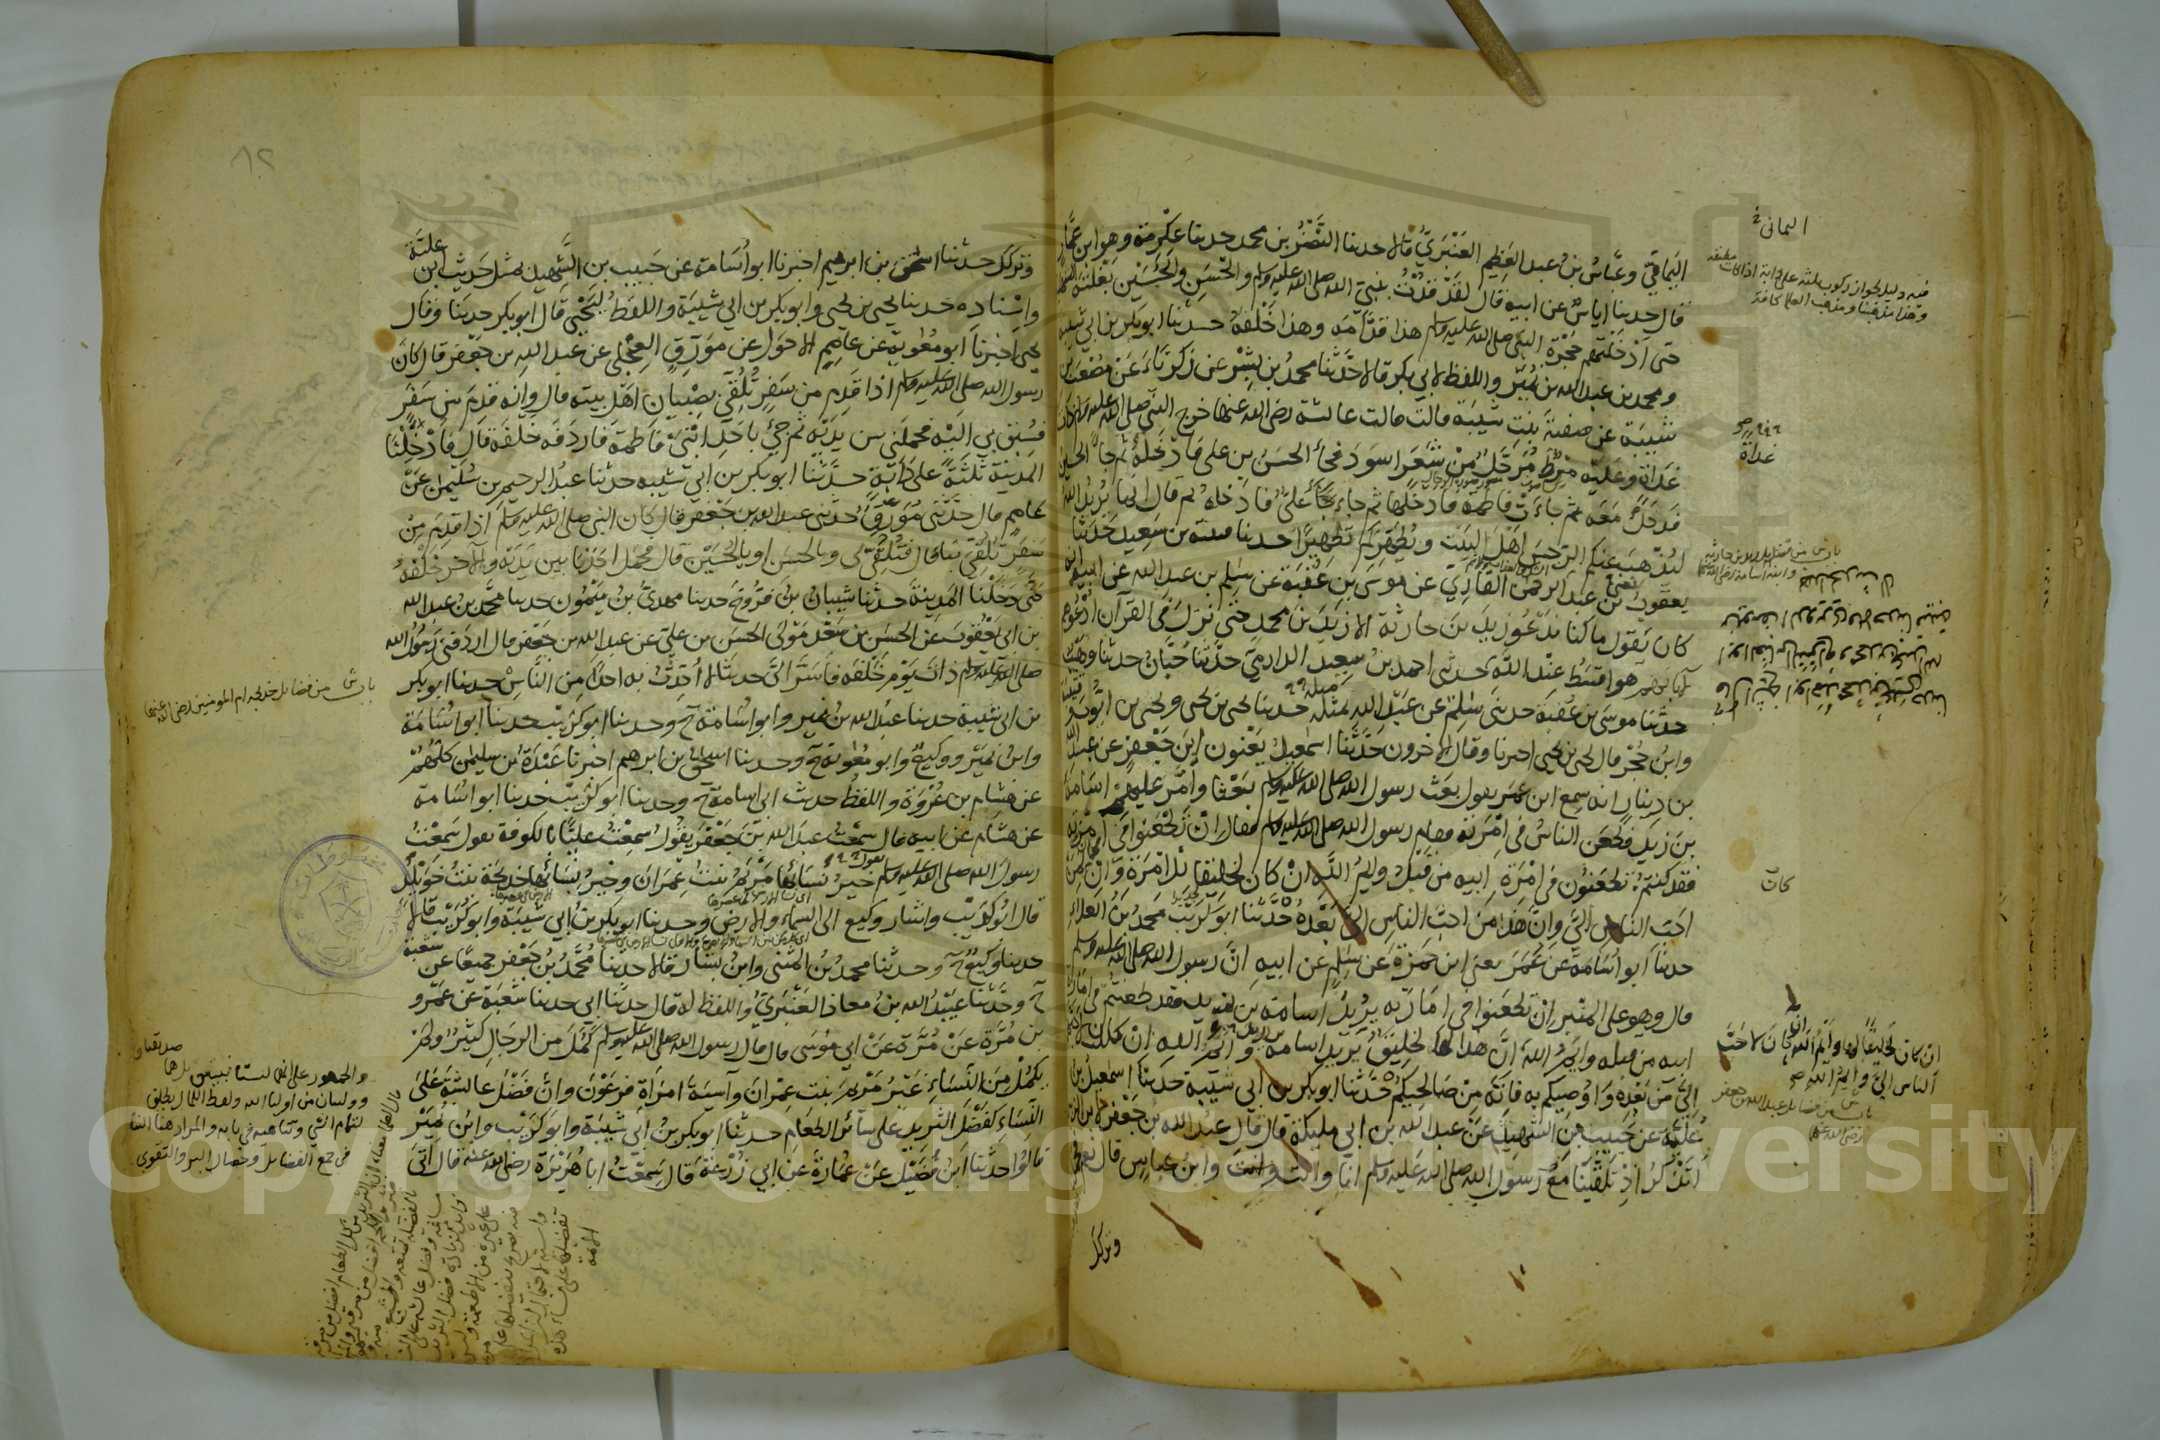 اليماني وعباس بن عبد العظيم العنبري قالا حدثنا النضر بن محمد حدثنا عكرمة وهو ابن عمار
قال حدثنا اياس عن ابيه قال لقد قدت بنبي الله صلى الله عليه وسلم والحسن والحسين بغلته
حتى ادخلتهم حجرة النبي صلى الله عليه وسلم هذا قدامه وهذا خلفه حدثنا ابو بكر بن ابي شيبة
ومحمد بن عبد الله بن نمير واللفظ لابي بكر قالا حدثنا محمد بن بشر عن زكرياء عن مصعب بن
شيبة عن صفية بنت شيبة قالت قالت عائشة رضي الله عنها خرج النبي صلى الله عليه وسلم
غداة وعليه مرط مرحل من شعر اسود فجاء الحسن بن علي فادخله ثم جاء الحسين
فدخل معه ثم جاءت فاطمة فادخلها ثم جاء علي فادخله ثم قال انما يريد الله
ليذهب عنكم الرجس اهل البيت ويطهركم تطهيرا حدثنا قتيبة بن سعيد حدثنا
يعقوب بن عبد الرحمن القاري عن موسى بن عقبة عن سالم بن عبد الله عن ابيه انه
كان يقول ما كنا ندعو زيد بن حارثة الا زيد بن محمد حتى نزل في القرآن ادعوهم
لآبائهم هو اقسط عند الله حدثني احمد بن سعيد الدارمي حدثنا حبان حدثنا وهيب
حدثنا موسى بن عقبة حدثني سالم عن عبد الله بمثله حدثنا يحيى بن يحيى ويحيى بن ايوب
وابن حجر قال يحيى بن يحيى اخبرنا وقال الاخرون حدثنا اسمعيل يعنون ابن جعفر عن عبد الله
بن دينار انه سمع ابن عمر يقول بعث رسول الله صلى الله عليه وسلم بعثا وامر عليهم اسامة
بن زيد فطعن الناس في امرته فقام رسول الله صلى الله عليه وسلم فقال ان تطعنوا في امرته
فقد كنتم تطعنون في امرة ابيه من قبل وايم الله ان كان لخليقا للامرة وان كان لمن
احب الناس الي وان هذا من احب الناس الي بعده حدثنا ابو كريب محمد بن العلاء
حدثنا ابو اسامة عن عمر يعني ابن حمزة عن سالم عن ابيه ان رسول الله صلى الله عليه وسلم
قال وهو على المنبر ان تطعنوا في امارته يريد اسامة بن زيد فقد طعنتم في امارة
ابيه من قبله وايم الله ان هذا لها لخليق يريد اسامة بن زيد وايم الله ان كان
الي من بعده فاوصيكم به فانه من صالحيكم حدثنا ابو بكر بن ابي شيبة حدثنا اسمعيل بن
علية عن حبيب بن الشهيد عن عبد الله بن ابي مليكة قال قال عبد الله بن جعفر لابن الزبير
اتذكر اذ تلقينا مع رسول الله صلى الله عليه وسلم انا وانت وابن عباس قال نعم
وتركك
اليماني
غداة
كان
ان كان لخليقا لها وايم الله ان كان لاحب
الناس الي وايم الله
باب من فضائل عبد الله بن جعفر
رضي الله عنهما
٨٢
وتركك حدثنا اسحق بن ابراهيم اخبرنا ابو اسامة عن حبيب بن الشهيد بمثل حديث بن علية
واسناده حدثنا يحيى بن يحيى وابو بكر بن ابي شيبة واللفظ ليحيى قال ابو بكر حدثنا وقال
يحيى اخبرنا ابو معوية عن عاصم الاحول عن مورق العجلي عن عبد الله بن جعفر قال كان
رسول الله صلى الله عليه وسلم اذا قدم من سفر تلقي بصبيان اهل بيته قال وانه قدم من سفر
فسبق بي اليه فحملني بين يديه ثم جيء باحد ابني فاطمة فاردفه خلفه قال فادخلنا
المدينة ثلثة على دابة حدثنا ابو بكر بن ابي شيبه حدثنا عبد الرحيم بن سليمن عن
عاصم قال حدثني مورق حدثني عبد الله بن جعفر قال كان النبي صلى الله عليه وسلم اذا قدم من
سفر تلقي بنا قال فتلقي بي وبالحسن او بالحسين قال فحمل احدنا بين يديه والاخر خلفه
حتى دخلنا المدينة حدثنا شيبان بن فروخ حدثنا مهدي بن ميمون حدثنا محمد بن عبد الله
بن ابي يعقوب عن الحسن بن سعد مولى الحسن بن علي عن عبد الله بن جعفر قال اردفني رسول الله
صلى الله عليه وسلم ذات يوم خلفه فاسر الي حديثا لا احدث به احدا من الناس حدثنا ابو بكر
بن ابي شيبة حدثنا عبد الله بن نمير وابو اسامة ح وحدثنا ابو كريب حدثنا ابو اسامة
وابن نمير ووكيع وابو معوية ح وحدثنا اسحق بن ابرهيم اخبرنا عبدة بن سليمن كلهم
عن هشام بن عروة واللفظ حديث ابي اسامة ح وحدثنا ابو كريب حدثنا ابو اسامة
عن هشام عن ابيه قال سمعت عبد الله بن جعفر يقول سمعت عليا بالكوفة يقول سمعت
رسول الله صلى الله عليه وسلم يقول خير نسائها مريم بنت عمران وخير نسائها خديجة بنت خويلد
قال ابو كريب واشار وكيع الى السماء والارض وحدثنا ابو بكر بن ابي شيبة وابو كريب قالا
حدثنا وكيع ح وحدثنا محمد بن المثنى وابن بشار قالا حدثنا محمد بن جعفر جميعا عن شعبة
ح وحدثنا عبيد الله بن معاذ العنبري واللفظ له قال حدثنا ابي حدثنا شعبة عن عمرو
بن مرة عن مرة عن ابي موسى قال قال رسول الله صلى الله عليه وسلم كمل من الرجال كثير ولم
يكمل من النساء غير مريم بنت عمران وآسية امراة فرعون وان فضل عائشة على
النساء كفضل الثريد على سائر الطعام حدثنا ابو بكر بن ابي شيبة وابو كريب وابن نمير
قالوا حدثنا ابن فضيل عن عمارة عن ابي زرعة قال سمعت ابا هريرة رضي الله عنه قال اتى
باب من فضائل خديجة ام المومنين رضي الله عنها
والجمهور على انهما ليستا نبيتين بل هما صديقتان
ووليتان من اولياء الله ولفظ الكمال يطلق
لتمام الشي وتناهيه في بابه والمراد هنا التناهي
في جمع الفضايل وخصال البر والتقوى
Copyright © King Saud University